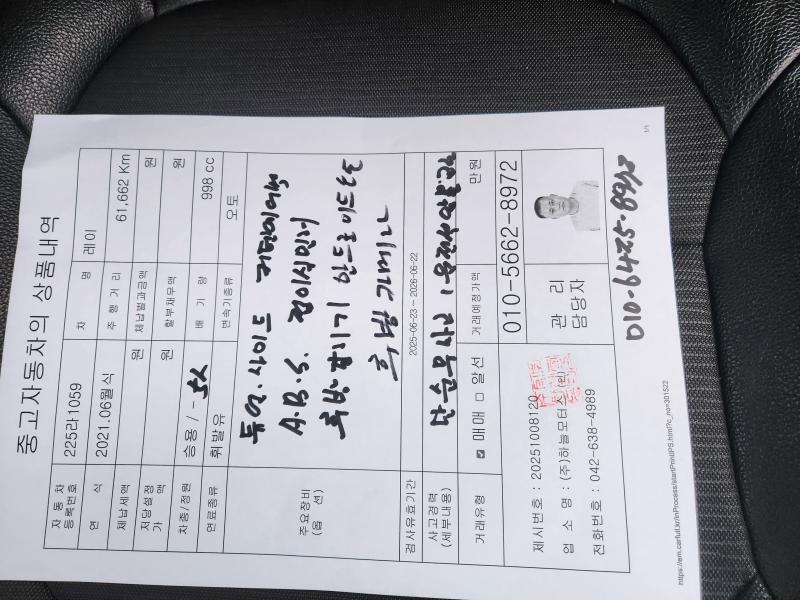 중고자동차의 상품내역
자동차 등록번호 225러1059 차 명 레이
연 식 2021.06월식 주 행 거 리 61,662 Km
체납세액 원 체납벌과금액 원
저당설정 가 액 원 할부채무액 원
차종/정원 승용 / - 5人 배 기 량 998 cc
연료종류 휘발유 변속기종류 오토
주요장비 (옵 션)
듀얼. 사이드 커텐에어백
A.B.S. 접이식밀러
후방감지기 안드로이드
후방카메라
검사유효기간 2025-06-23 ~ 2026-06-22
사고경력 (세부내용) 단순무사고
거래유형 ☑ 매매 □ 알선 거래예정가액 만원
제시번호 : 20251008120
업 소 명 : (주)하늘모터스 (인)
전화번호 : 042-638-4989
관 리 담당자
010-5662-8972
010-6425-8972
https://em.carfull.kr/inProcess/startPrintIPS.html?c_no=301522
1/1